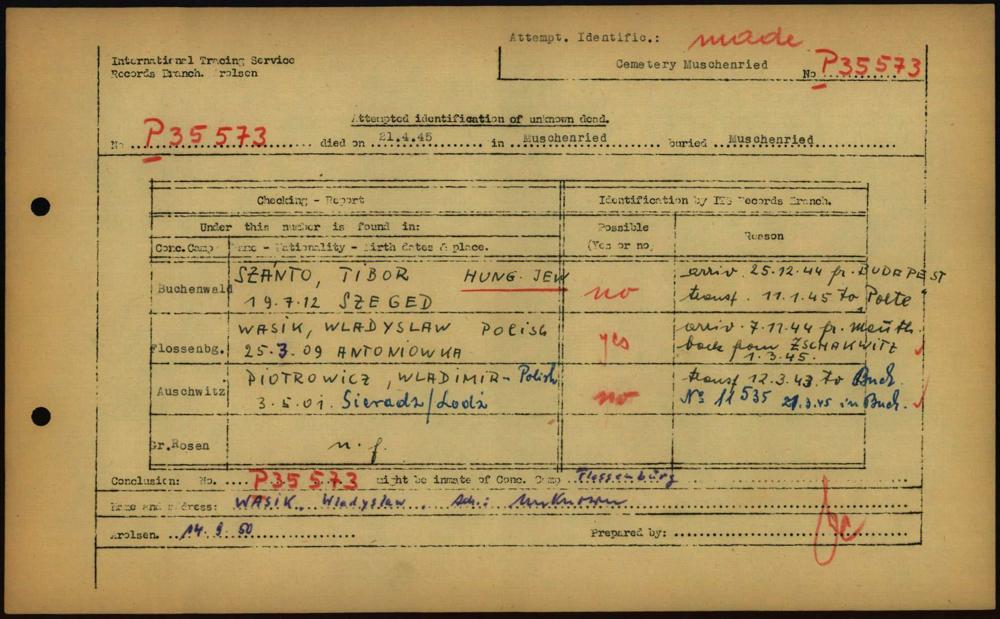 Attempt. Identific.: made
International Tracing Service
Cemetery Muschenried
Records Branch. Arolsen
No P35573
Attempted identification of unknown dead.
No P35573 died on 21.4.45 in Muschenried buried Muschenried
Checking - Report
Identification by ITS Records Branch.
Under this number is found in:
Possible
(Yes or no)
Reason
Conc.Camp
Name - Nationality - Birth dates & place.
Buchenwald
SZÁNTO, TIBOR HUNG. JEW
19.7.12 SZEGED
no
arriv. 25.12.44 fr. BUDAPEST
transf. 11.1.45 to "Polte"
Flossenbg.
WASIK, WLADYSLAW POLISH
25.3.09 ANTONIOWKA
yes
arriv. 7.11.44 fr. Mauth.
back from ZSCHAKWITZ
1.3.45.
Auschwitz
PIOTROWICZ, WLADIMIR - Polish
3.5.01. Sieradz/Lodz
no
transf 12.3.43 to Buch.
No 11535 21.3.45 in Buch.
Gr.Rosen
n.f.
Conclusion: No. P35573 might be inmate of Conc. Camp Flossenbürg
Name and address: WASIK, Wladyslaw, Adr.: unknown
Arolsen. 14.9.50 Prepared by: